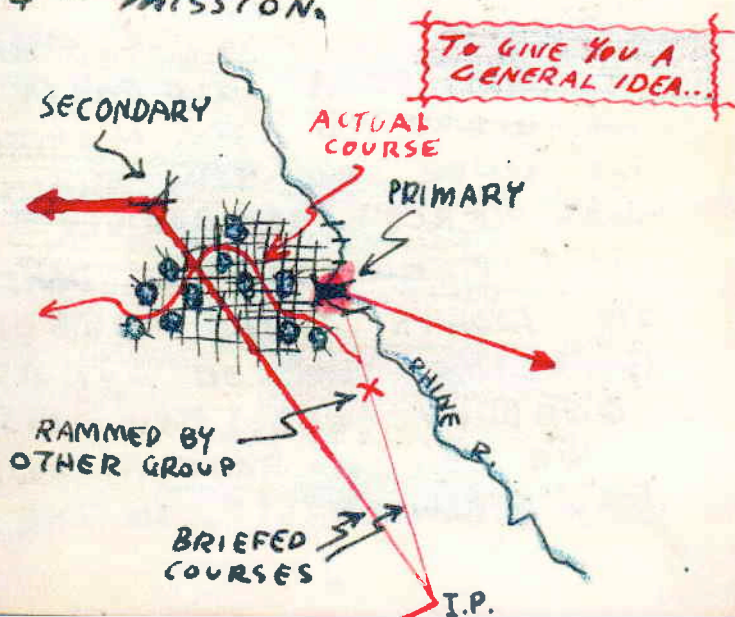 MISSION.
TO GIVE YOU A
GENERAL IDEA...
SECONDARY
ACTUAL
COURSE
PRIMARY
RHINE R.
RAMMED BY
OTHER GROUP
BRIEFED
COURSES
I.P.